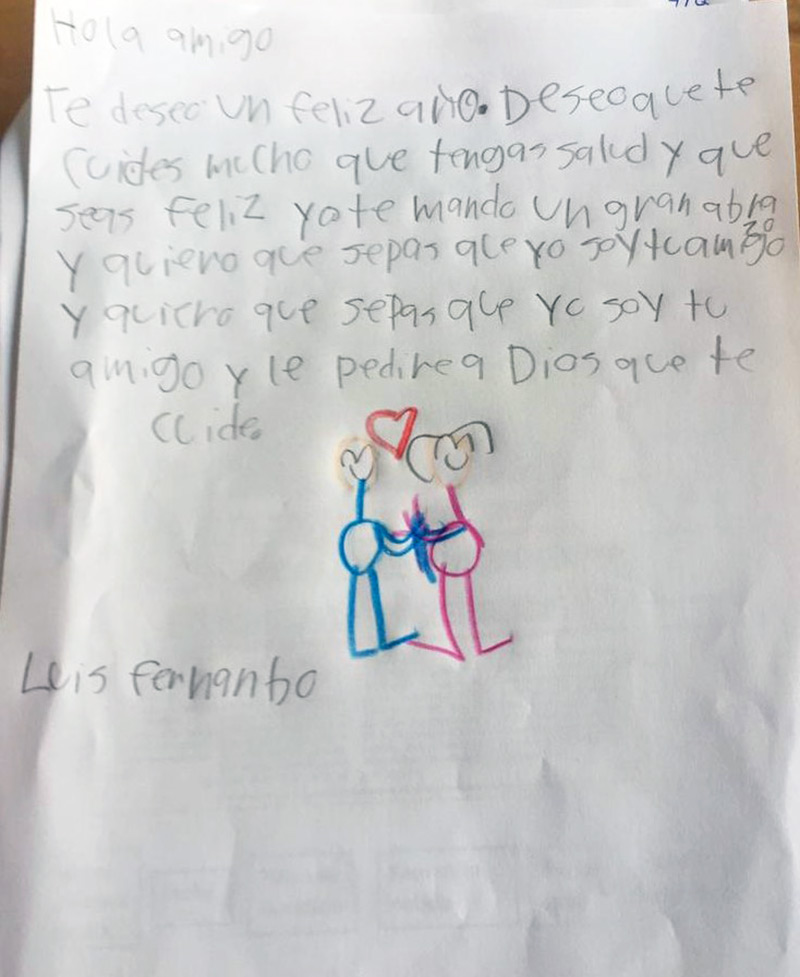 Hola amigo
Te deseo un feliz año. Deseo que te
cuides mucho que tengas salud y que
seas feliz yo te mando un gran abra
zo
y quiero que sepas que yo soy tu amigo
y quiero que sepas que yo soy tu
amigo y le pedire a Dios que te
cuide
Luis fernanbo